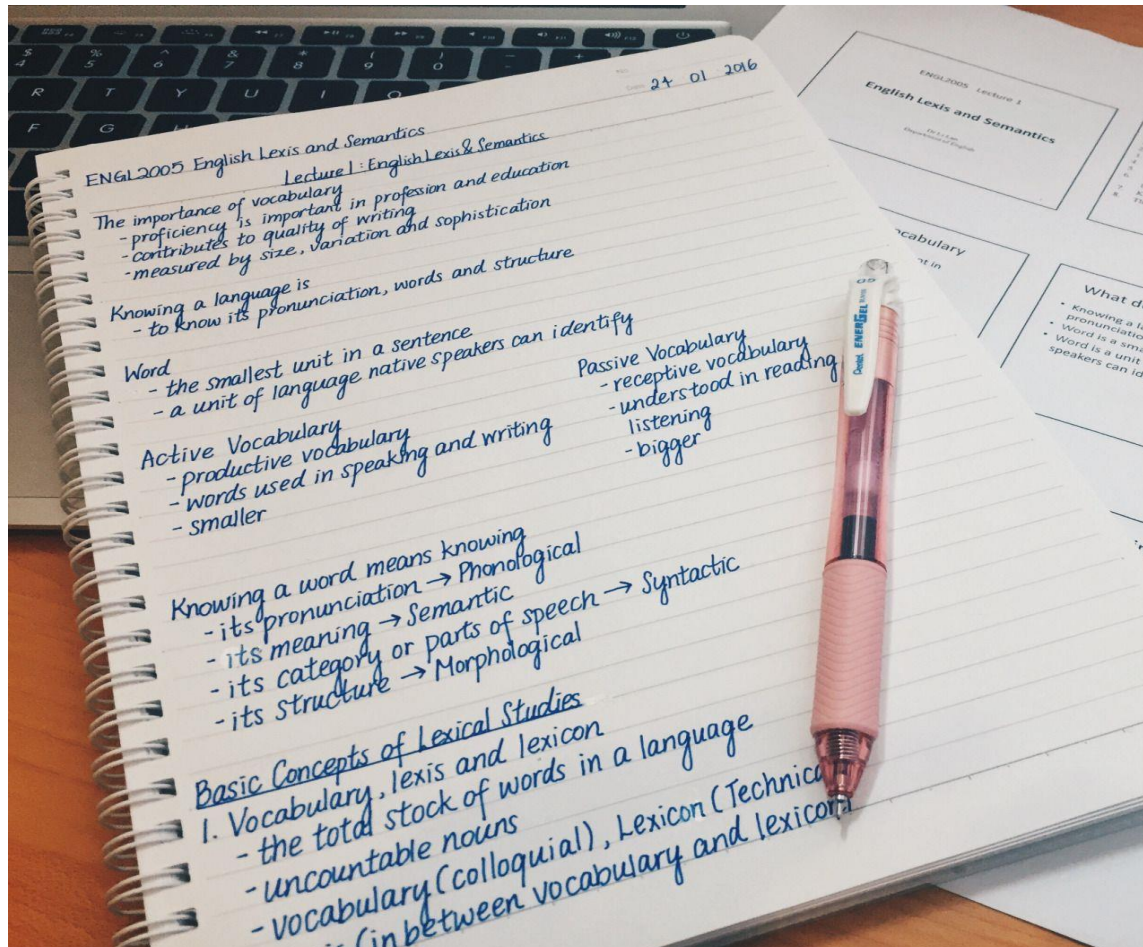 24 01 2016
ENGL2005 English Lexis and Semantics
Lecture 1 : English Lexis & Semantics
The importance of vocabulary
- proficiency is important in profession and education
- contributes to quality of writing
- measured by size, variation and sophistication
Knowing a language is
- to know its pronunciation, words and structure
Word
- the smallest unit in a sentence
- a unit of language native speakers can identify
Active Vocabulary
- productive vocabulary
- words used in speaking and writing
- smaller
Passive Vocabulary
- receptive vocabulary
- understood in reading
listening
- bigger
Knowing a word means knowing
- its pronunciation → Phonological
- its meaning → Semantic
- its category or parts of speech → Syntactic
- its structure → Morphological
Basic Concepts of Lexical Studies
1. Vocabulary, lexis and lexicon
- the total stock of words in a language
- uncountable nouns
- vocabulary (colloquial), Lexicon (Technica
(in between vocabulary and lexicon)
Pentel ENERGEL
05
ENGL2005 Lecture 1
English Lexis and Semantics
Department of English
What d
• Knowing a
pronunciatio
• Word is a sma
• Word is a unit
speakers can id
$ % ^ & * ( )
4 5 6 7 8 9 0
R T Y U I O
F G